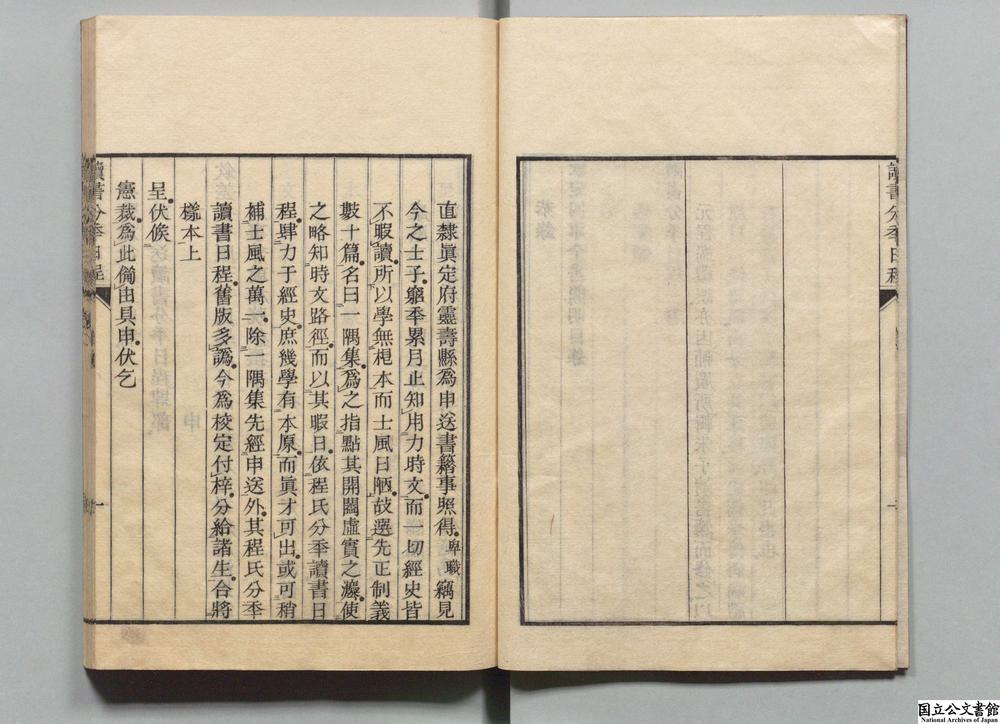 直隸眞定府靈壽縣為申送書籍事照得卑職竊見
今之士子窮秊累月止知用力時文而一切經史皆
不暇讀所以學無根本而士風日陋故選先正制義
數十篇名曰一隅集為之指點其開闔虛實之灋使
之略知時文路徑而以其暇日依程氏分秊讀書日
程肆力于經史庶幾學有本原而眞才可出或可稍
補士風之萬一除一隅集先經申送外其程氏分秊
讀書日程舊版多譌今為校定付梓分給諸生合將
樣本上
呈伏候
憲裁為此僃由具申伏乞
讀書分秊日程
一
讀書分秊日程
国立公文書館
National Archives of Japan